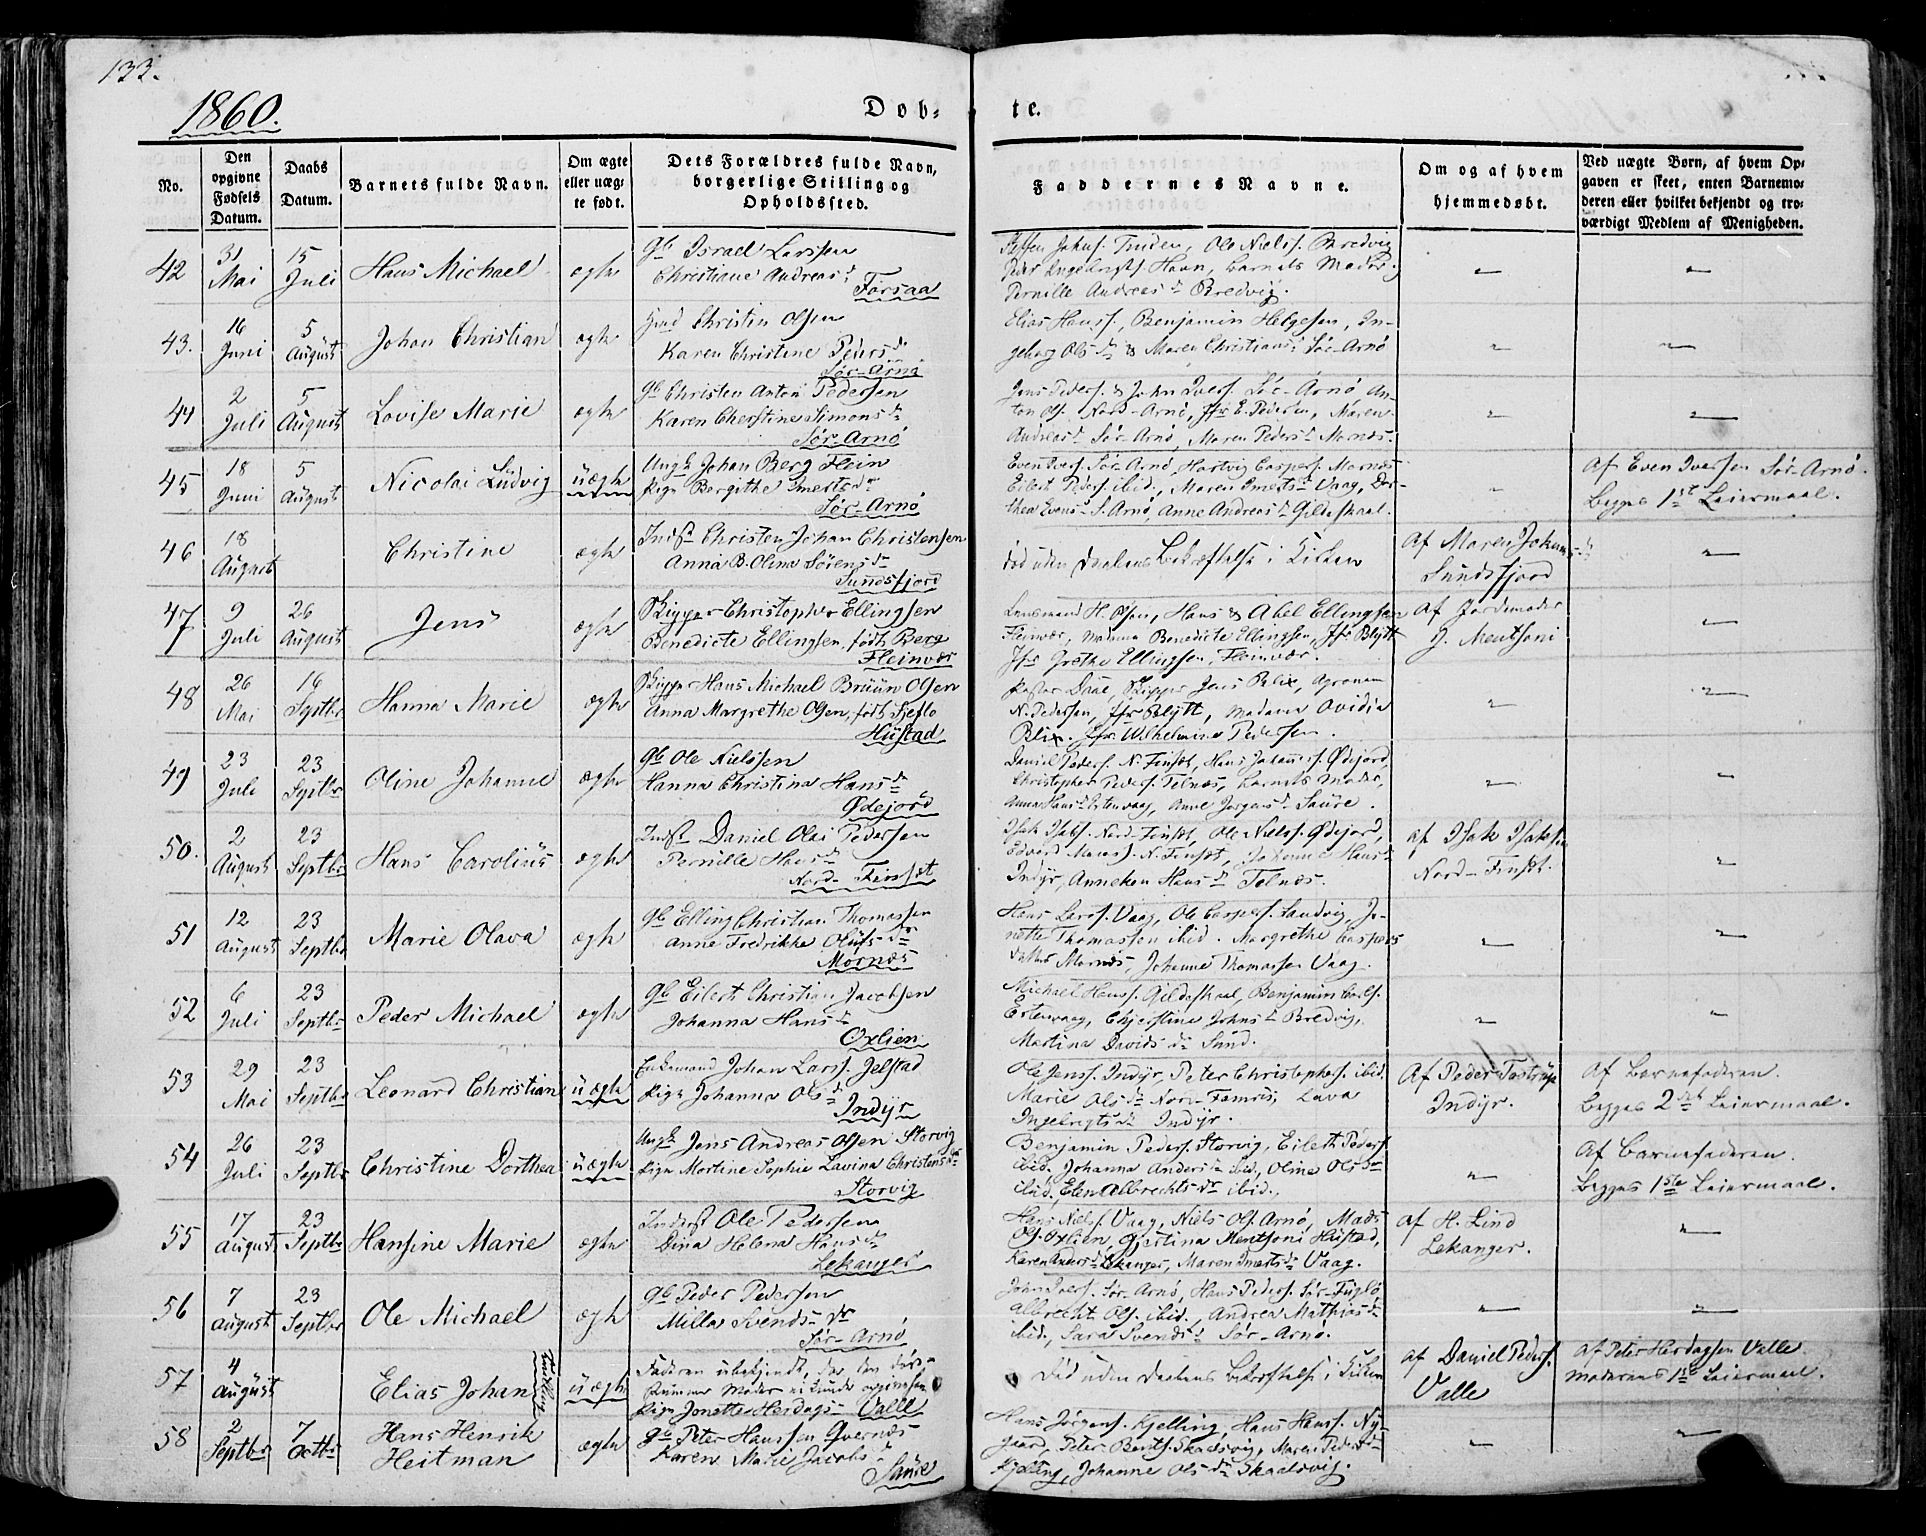 133.
1860.
Dob-
te.
No.
Den opgivne Fødsels Datum.
Daabs Datum.
Barnets fulde Navn.
Om ægte eller uægte født.
Dets Forældres fulde Navn, borgerlige Stilling og Opholdssted.
Faddernes Navne.
Om og af hvem hjemmedøbt.
Ved uægte Børn, af hvem Opgaven er skeet, enten Barnemoderen eller hvilket bekjendt og troværdigt Medlem af Menigheden.
42
31 Mai
15 Juli
Hans Michael
ægte
Gb Israel Larssen
Christiane Andreasdr
Forsaa
Ole Nielss. Bredvig
Havn, barnets Moder,
Pernille Andreasdr Bredvig.
43.
16 Juni
5 August
Johan Christian
ægte
Christen Olsen
Karen Christine Pedersdr
Sør-Arnø
Elias Hanss., Benjamin Helgesen, In-
geborg Olsdr & Maren Christiansdr Sør-Arnø
44
2 Juli
5 August
Lovise Marie
ægte
Gb Christen Anton Pedersen
Karen Cherstine Simonsdr
Sør-Arnø
Jens Peders. & John Ivers. Sør-Arnø An-
ton Ols. Nord-Arnø, Jfr E. Pedersen, Maren
Andreasdr Sør-Arnø, Maren Pedersdr Mornæs.
45
18 Juni
5 August
Nicolai Ludvig
uægte
Ungk Johan Berg Flein
Pige Bergithe Imertsdr
Sør-Arnø
Even Ivers. Sør-Arnø, Hartvig Caspers. Mornæs
Eilert Peders. ibid., Maren Imertsdr Vaag, Dor-
thea Evensdr S. Arnø, Anne Andreasdr Gildeskaal.
Af Even Iversen Sør-Arnø.
begges 1ste Leiermaal.
46
18 August
Christine
ægte
Indst Christen Johan Christensen
Anna B. Olina Sørensdr
Sundsfjord
død uden Daabens Bekræftelse i Kirken
Af Maren Johns dr
Sundsfjord
47
9 Juli
26 August
Jens
ægte
Skipper Christopher Ellingsen
Benedicte Ellingsen, født Berg
Fleinvær
Lensmand H. Olsen, Hans & Abel Ellingsen
Fleinvær, Madama Benedicte Ellingsen, Jfr Blytt
Jfr Grethe Ellingsen, Fleinvær.
Af Jordemoder
J. Mentsoni
48
26 Mai
16 Septbr
Hanna Marie
ægte
Skipper Hans Michael Bruun Olsen
Anna Margrethe Olsen, født Fjeflo
Hustad
Pastor Daae, Skipper Jens Blix, Agronom
N. Pedersen, Jfr Blytt, Madama Ovidia
Blix. Jfr Wilhelmine Pedersen.
49
23 Juli
23 Septbr
Oline Johanne
ægte
Gb Ole Nielsen
Hanna Christina Hansdr
Ødejord
Daniel Peders. N. Finset, Hans Johannes. Ødejord,
Christopher Peders. Telnæs, barnets Moder,
Anna Hansdr Estenvaag, Anne Jørgensdr Saure.
50.
2 August
23 Septbr
Hans Carolius
ægte
Indst Daniel Olai Pedersen
Pernille Hansdr
Nord-Finset
Isak Isaks. Nord-Finset, Ole Niels. Ødejord,
N. Finset, Johanna Hansdr
Indyr, Anneken Hansdr Telnæs.
Af Isak Isaksen
Nord-Finset.
51
12 August
23 Septbr
Marie Olava
ægte
Gb Elling Christian Thomassen
Anne Fredrikke Olufsdr
Mornæs
Hans Larss. Vaag, Ole Caspers. Sandvig, Jo-
nette Thomassen ibid. Margrethe Caspers
datter Mornæs, Johanne Thomassen Vaag.
52
6 Juli
23 Septbr
Peder Michael
ægte
Gb Eilert Christian Jacobsen
Johanna Hansdr
Oxlien
Michael Hanss. Gildeskaal, Benjamin Carls.
Estenvaag, Chjerstine Johnsdr Bredvig,
Martina Davidsdr Sund.
53
29 Mai
23 Septbr
Leonard Christian
uægte
Enkemand Johan Larss. Jelstad
Pige Johanna Olsdr
Indyr
Ole Jenss. Indyr, Peter Christophs. ibid.
Marie Olsdr Nord-Famris, Lava
Ingebrigtsdr Indyr.
Af Peder Tostrup
Indyr.
Af Barnefaderen.
begges 2det Leiermaal.
54
26 Juli
23 Septbr
Christine Dorthea
uægte
Ungk Jens Andreas Olsen Storvig
Pige Martine Sophie Lavina Christensdr
Storvig
Benjamin Peders. Storvig, Eilert Peders.
ibid. Johanna Andersdr ibid, Oline Olsdr
ibid, Elen Albrechtsdr ibid.
Af Barnefaderen.
begges 1ste Leiermaal.
55
17 August
23 Septbr
Hansine Marie
ægte
Inderst Ole Pedersen
Dina Helena Hansdr
Lekanger
Hans Niels. Vaag, Niels Ols. Arnø, Mads
Ols. Oxlien, Gjertina Mentsoni Hustad,
Karen Andersdr Lekanger, Maren Imertsdr Vaag.
Af H. Lind
Lekanger.
56
7 August
23 Septbr
Ole Michael
ægte
Gb Peder Pedersen
Milla Svendsdr
Sør-Arnø
John Ivers. Sør-Arnø, Hans Peders. Sør-Fuglø
Albrecht Ols. ibid., Andrea Mathiasdr
ibid., Sara Svendsdr Sør-Arnø.
57
4 August
Elias Johan
Tvilling
uægte
Faderen ubekjendt, da den døv-
stumme Moder ei kunde opgive ham
Pige Jonette Herdags- Valle
Død uden Daabens Bekræftelse i Kirken
Af Daniel Peders.
Valle
Af Peter Herdagsen Valle
Moderens 1ste Leiermaal.
58
2 Septbr
7 Octbr
Hans Henrik
Heitman
ægte
Gb Peter Hanssen Qvernæs
Karen Marie Jacobsdr
Saure
Hans Jørgens. Kjelling, Hans Hanss. Ny-
gaard, Peter Bents. Skaalsvig, Maren Pedersdr
Kjelling, Johanne Olsdr Skaalsvig.